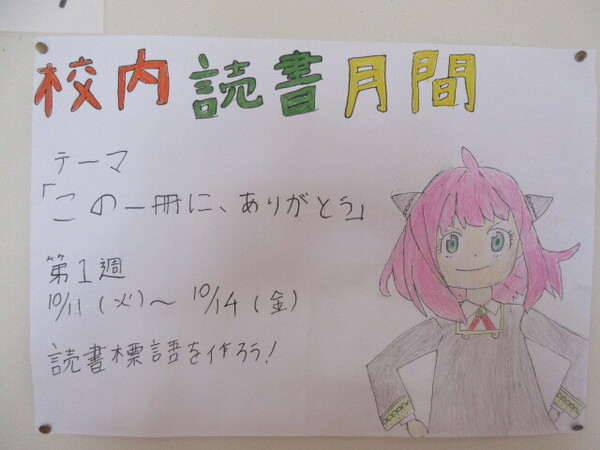 校内読書月間
テーマ
「この一冊に、ありがとう」
第1週
10/11(火)～10/14(金)
読書標語を作ろう!